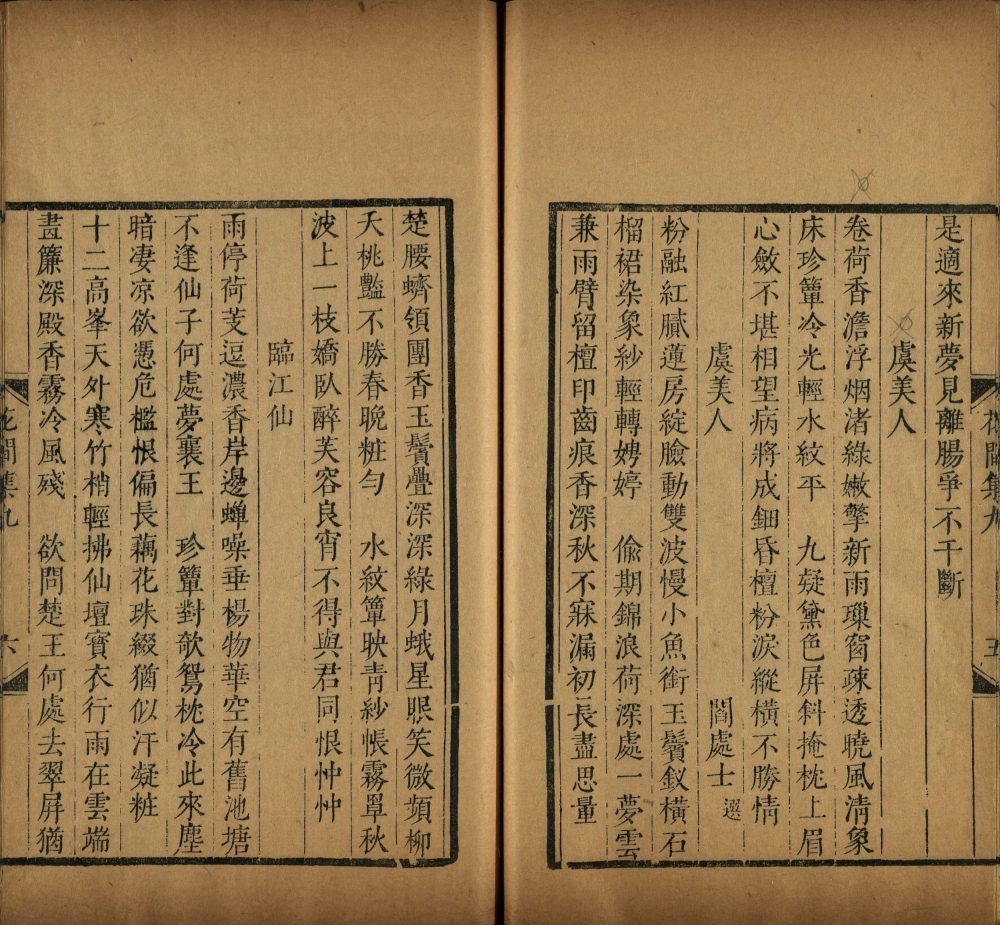 是適來新夢見離腸爭不千斷
虞美人
卷荷香澹浮烟渚綠嫩擎新雨璅窗疎透曉風清象
床珍簟冷光輕水紋平　九疑黛色屏斜掩枕上眉
心斂不堪相望病將成鈿昏檀粉淚縱橫不勝情
虞美人　閻處士選
粉融紅膩蓮房綻臉動雙波慢小魚銜玉鬢釵橫石
榴裙染象紗輕轉娉婷　偷期錦浪荷深處一夢雲
兼雨臂留檀印齒痕香深秋不寐漏初長盡思量
花間集九　五
楚腰蠐領團香玉鬢疊深深綠月蛾星眼笑微頻柳
夭桃豔不勝春晚粧勻　水紋簟映青紗帳霧罩秋
波上一枝嬌臥醉芙容良宵不得與君同恨忡忡
臨江仙
雨停荷芰逗濃香岸邊蟬噪垂楊物華空有舊池塘
不逢仙子何處夢襄王　珍簟對欹鴛枕冷此來塵
暗凄凉欲憑危檻恨偏長藕花珠綴猶似汗凝粧
十二高峯天外寒竹梢輕拂仙壇寳衣行雨在雲端
畫簾深殿香霧冷風殘　欲問楚王何處去翠屏猶
花間集九　六